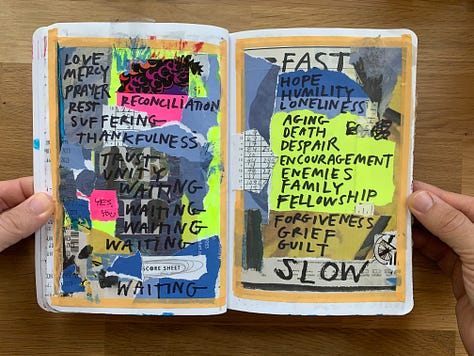 LOVE
MERCY
PRAYER
REST
RECONCILIATION
SUFFERING
THANKFULNESS
TRUST
UNITY
WAITING
YES,
YOU
WAITING
WAITING
WAITING
SCORE SHEET
WAITING
FAST
HOPE
HUMILITY
LONELINESS
AGING
DEATH
DESPAIR
ENCOURAGEMENT
ENEMIES
FAMILY
FELLOWSHIP
FORGIVENESS
GRIEF
GUILT
SLOW